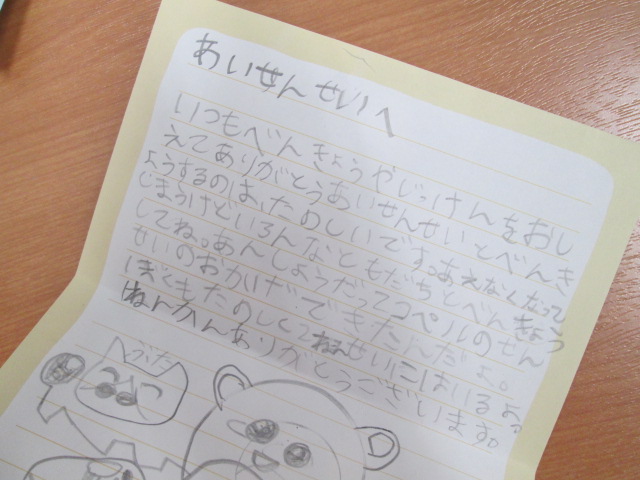 あいせんせいへ
いつもべんきょうやじっけんをおし
えてありがとうあいせんせいとべんき
ようするのは、たのしいです。あえなくなって
じまうけどいろんなともだちとべんきょう
してね。あんしょうだってコペルのせん
せいのおかげでできたんだよ。
ぼくもたのしくて せいにはいるよ。
ねんかんありがとうございます。
ぶた